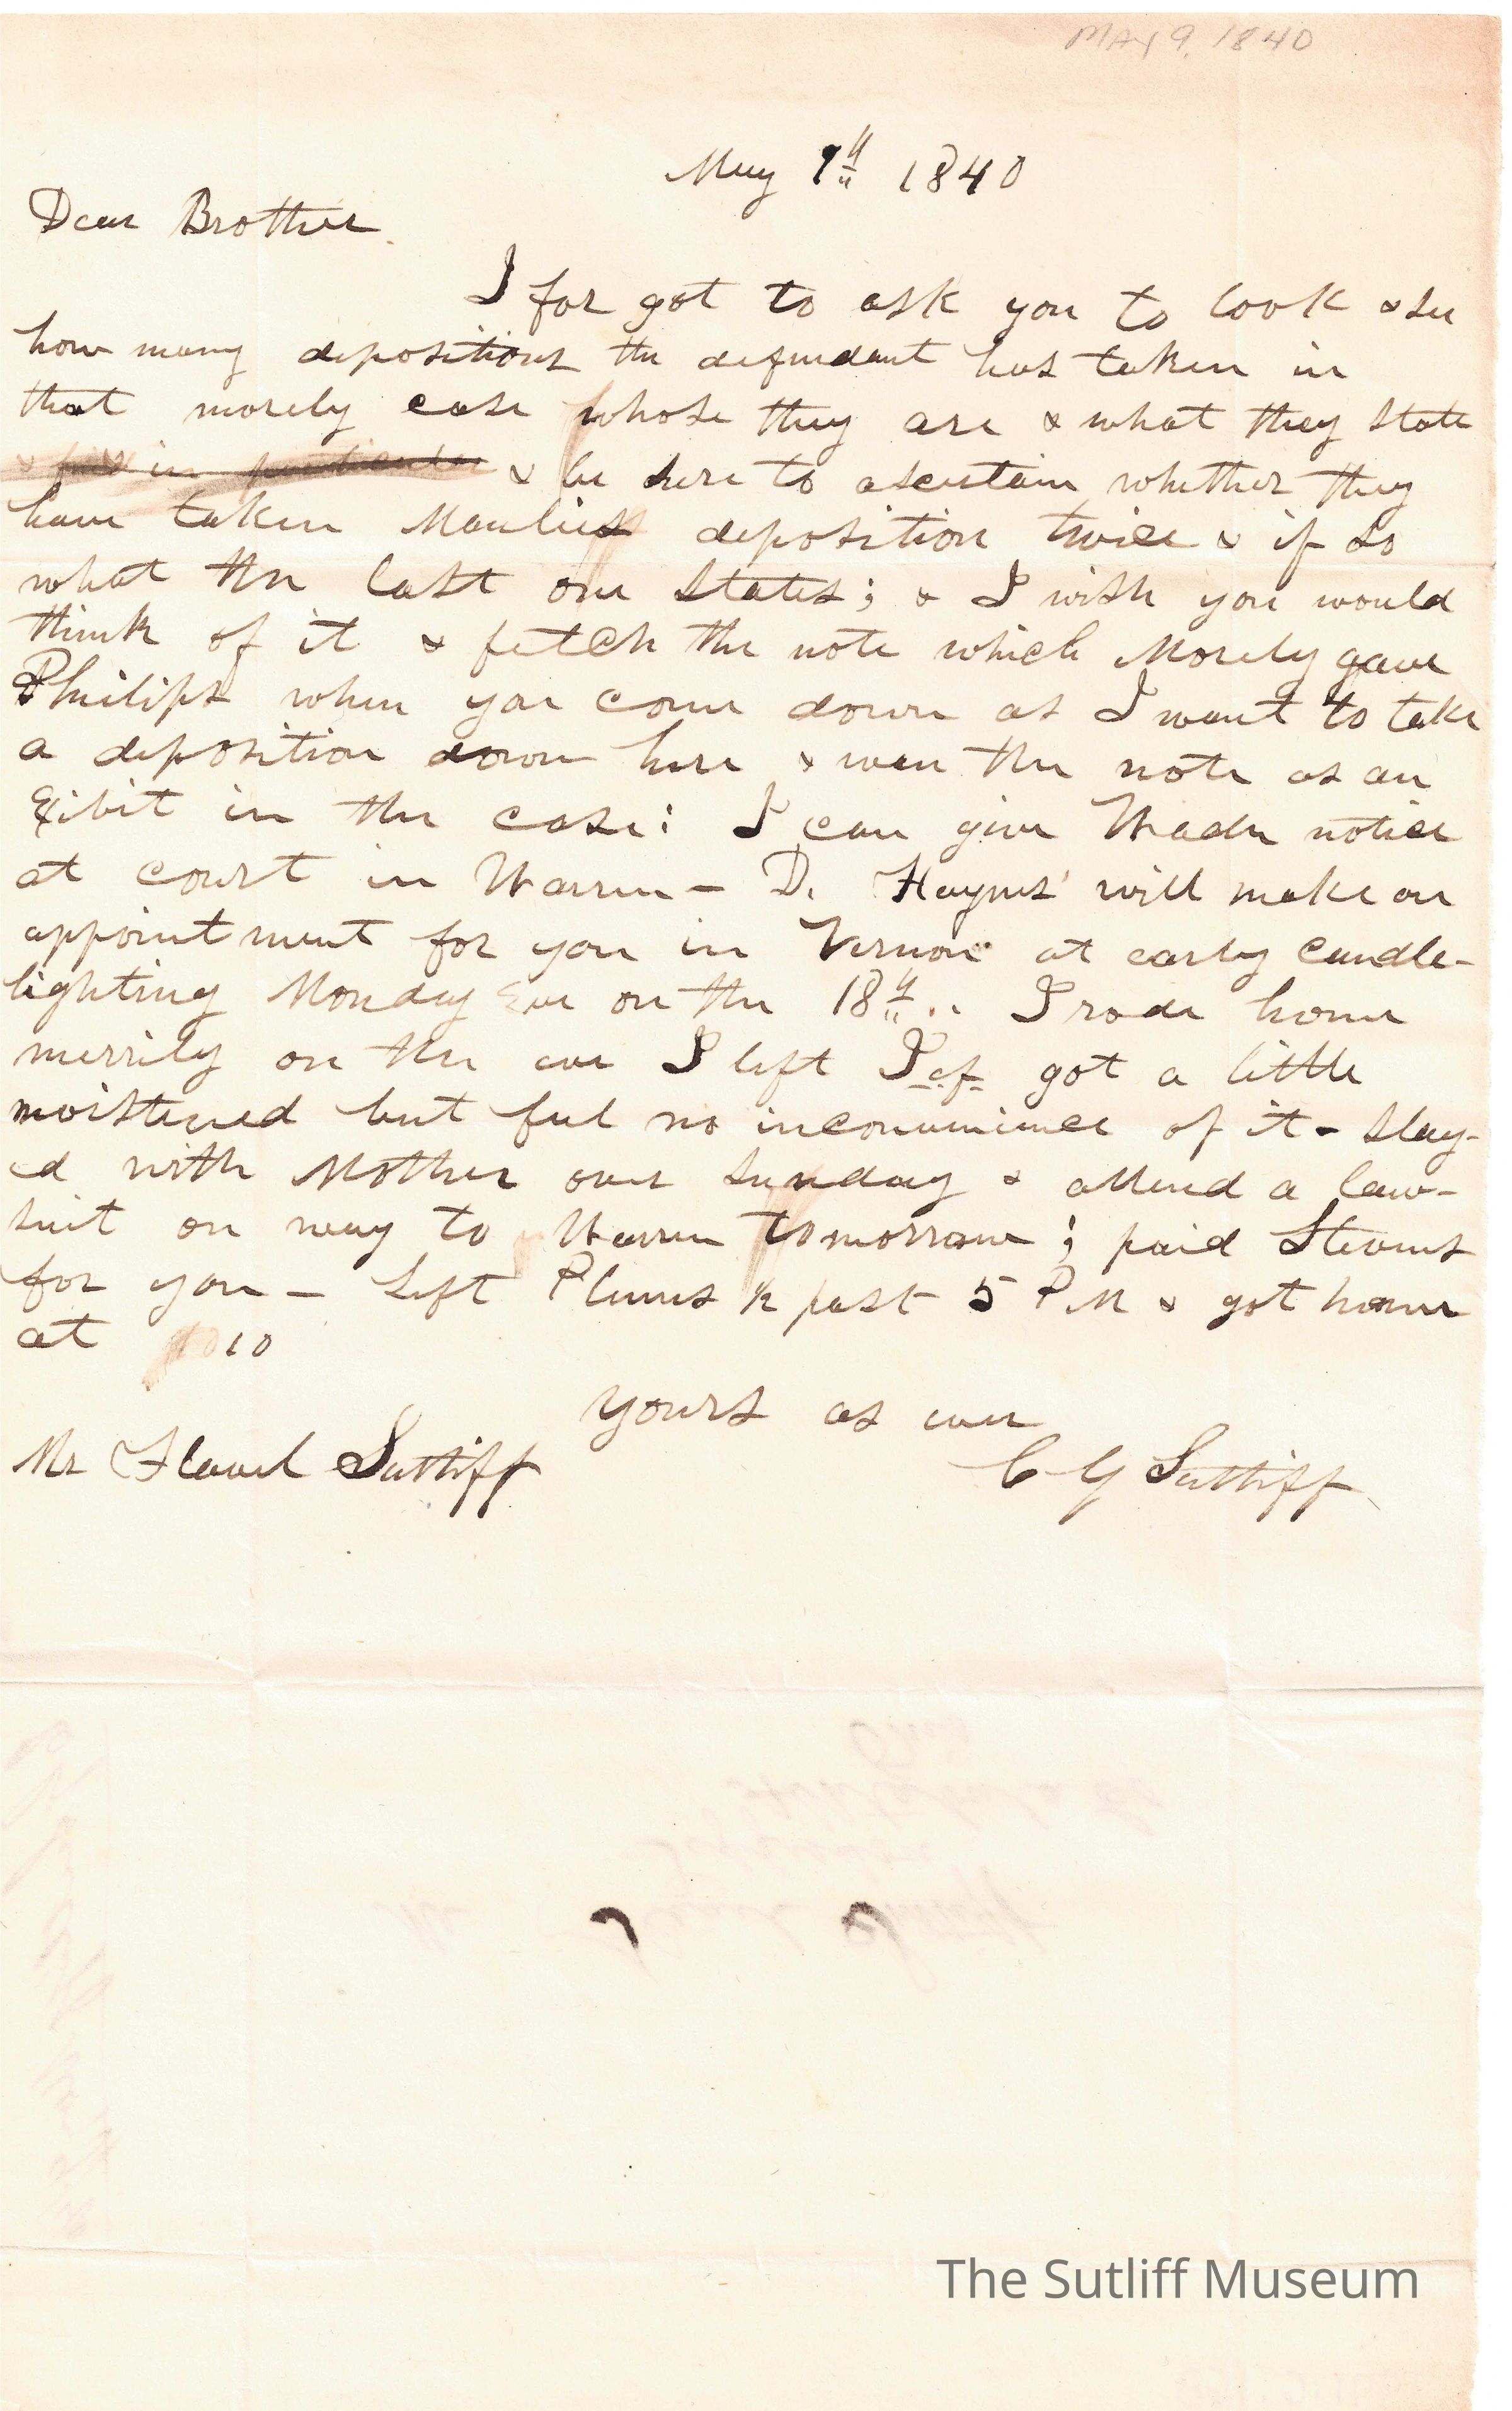 MAY 9, 1840
May 9th 1840
Dear Brother
I for got to ask you to look & see
how many depositions the defendant has taken in
that morely case whose they are & what they state
& be sure to ascertain whether they
have taken deposition twice & if so
what the last one states; & I wish you would
think of it & fetch the note which Morely gave
Philips when you come down as I want to take
a deposition down here & the note as an
Exibit in the case: I can give Wade notice
at court in Warren - D. Haynes will make an
appointment for you in Vernon at early candle-
lighting Monday Eve on the 18th.. I rode home
merrily on the eve I left Jef. got a little
moistened but feel no inconvenience of it - stay-
ed with Mother over sunday & attend a law-
suit on way to Warren tomorrow; paid Stevens
for you - Left Plums ½ past 5 PM & got home
at 10
Yours as ever
Mr Flavel Sutliff
C G Sutliff
The Sutliff Museum